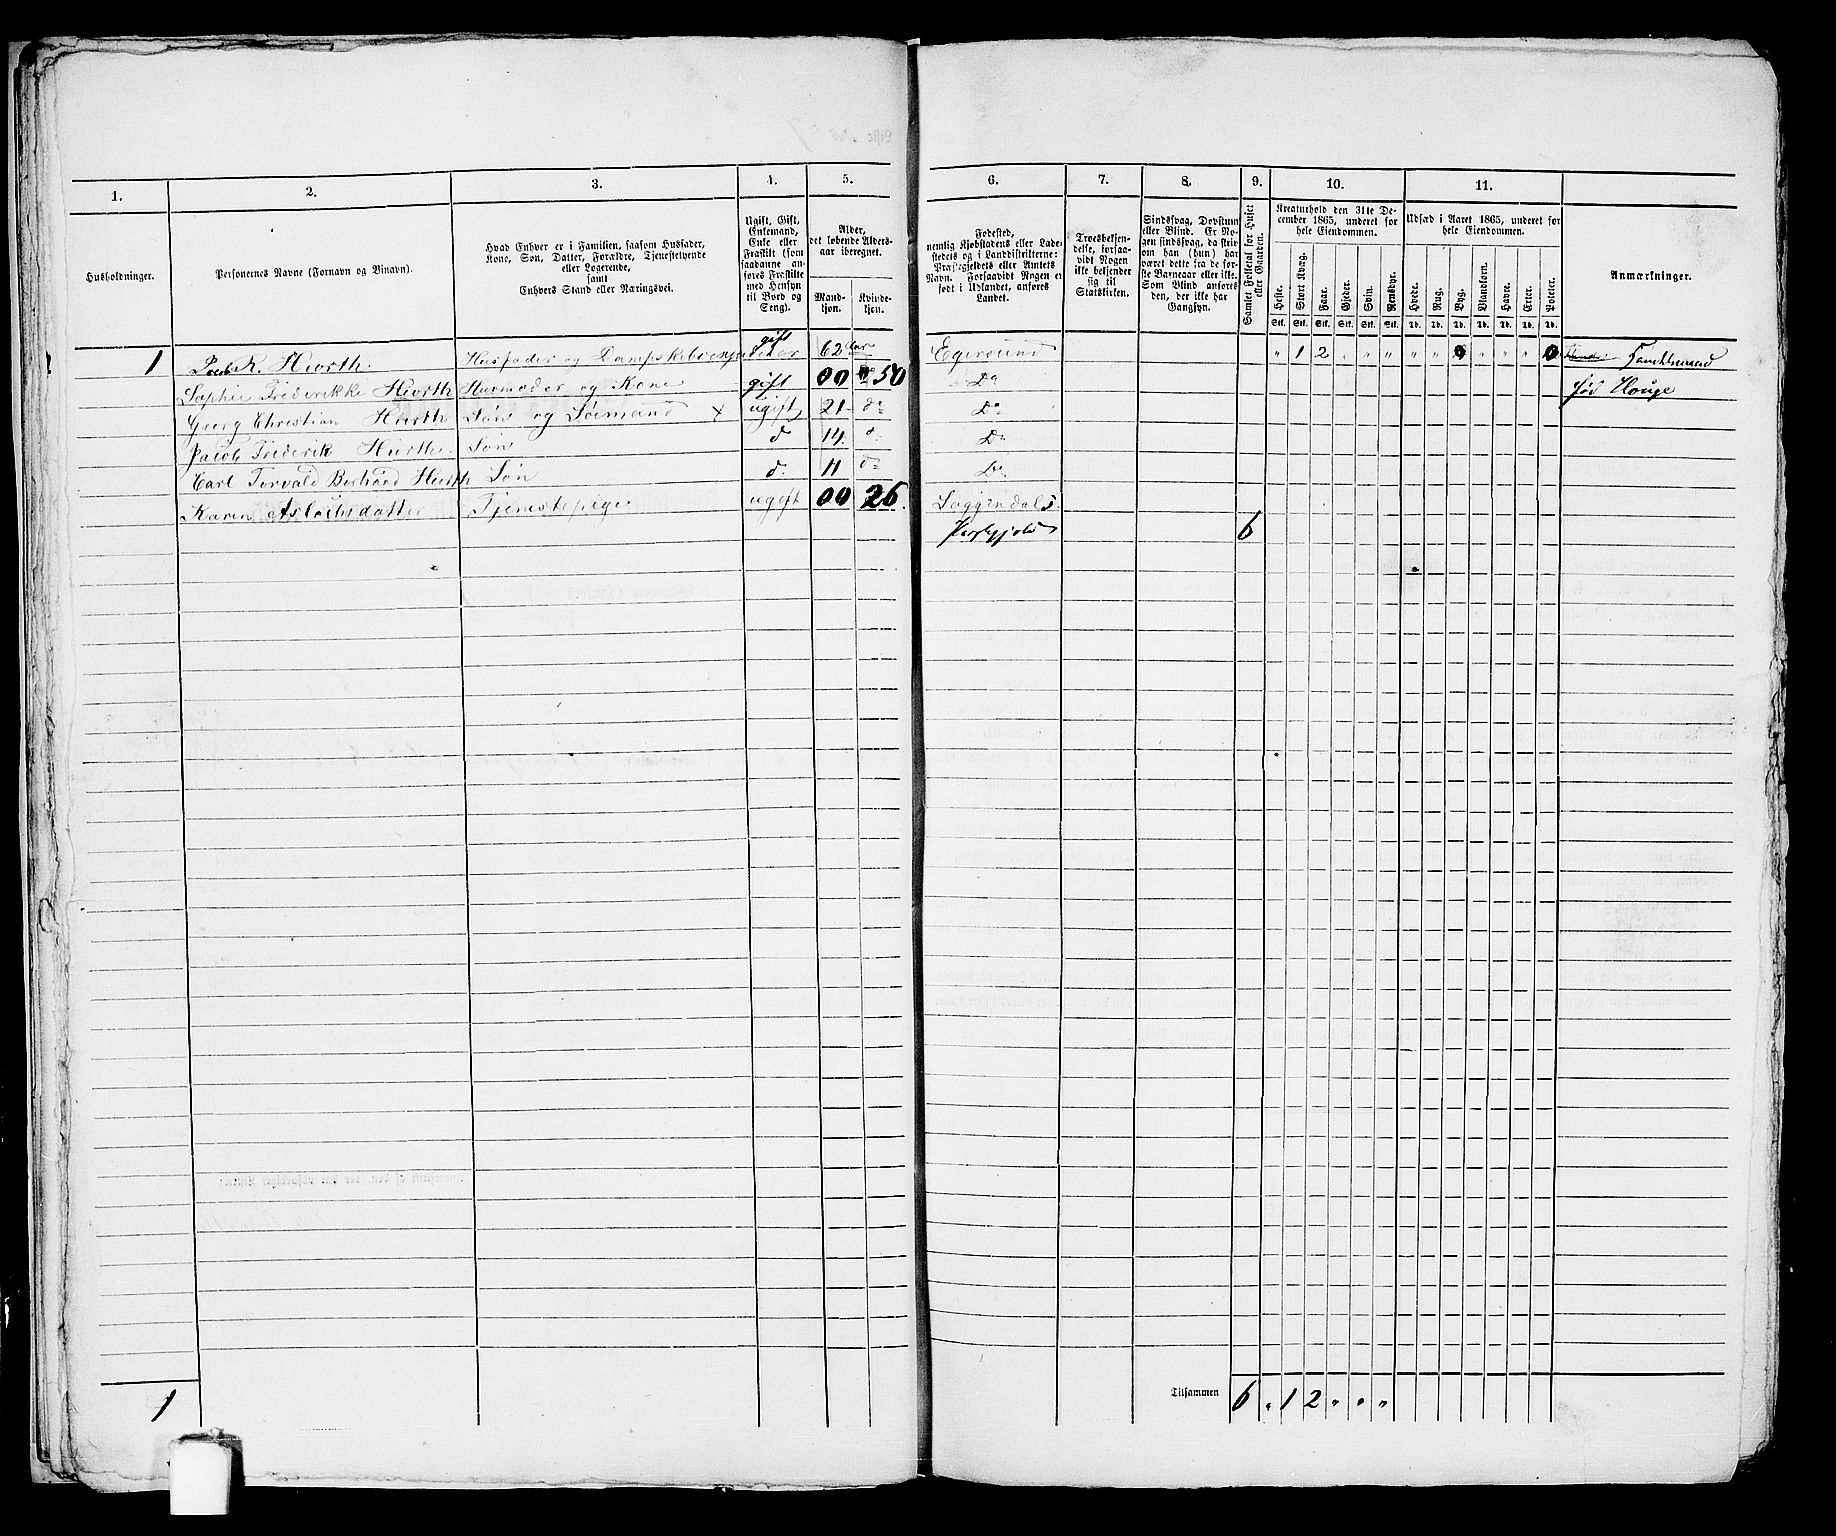 1.
2.
3.
4.
5.
6.
7.
8.
9.
10.
11.
Husholdninger.
Personernes Navne (Fornavn og Binavn).
Hvad Enhver er i Familien, saasom Husfader,
Kone, Søn, Datter, Forældre, Tjenestetyende
eller Logerende,
samt
Enhvers Stand eller Næringsvei.
Ugift, Gift,
Enkemand,
Enke eller
Fraskilt (som
saadanne an-
føres Fraskilte
med Hensyn
til Bord og
Seng).
Alder,
det løbende Alders-
aar iberegnet.
Mand-
kjøn.
Kvinde-
kjøn.
Fødested,
nemlig Kjøbstadens eller Lade-
stedets og i Landdistrikterne:
Præstegjeldets eller Amtets
Navn. Forsaavidt Nogen er
født i Udlandet, anføres
Landet.
Troesbekjen-
delse, forsaa-
vidt Nogen
ikke bekjender
sig til
Statskirken.
Sindssvag, Døvstum
eller Blind. Er No-
gen sindssvag, da skriv
om han (hun) har
været dette fra de før-
ste Barneaar eller ikke.
Som Blind anføres
den, der ikke har
Gangsyn.
Samlet Folketal for Huset
eller Gaarden.
Kreaturhold den 31te De-
cember 1865, underet for
hele Eiendommen.
Heste. Stort Kvæg. Faar. Gjeder. Svin. Rensdyr.
Stk. Stk. Stk. Stk. Stk. Stk.
Udsæd i Aaret 1865, underet for
hele Eiendommen.
Hvede. Rug. Byg. Blandkorn. Havre. Erter. Poteter.
Td. Td. Td. Td. Td. Td. Td.
Anmærkninger.
1 R. Hiorth Husfader og gift 62 Aar Egersund " 1 2 " " " " " 0 " " " 0
Sophie Frederikke Hiorth Husmoder og Kone gift 00 50 Do
Georg Christian Hiorth Søn og Sømand x ugift 21 do Do
Jacob Frederik Hiorth Søn d 14 d. Do
Carl Torvald Berhard Hiorth Søn d. 11 do Do
Karen Aslaksdatter Tjenestepige ugift 00 26. Soggendals
Præstgjeld 6
1 Tilsammen 6 " 1 2 " " "